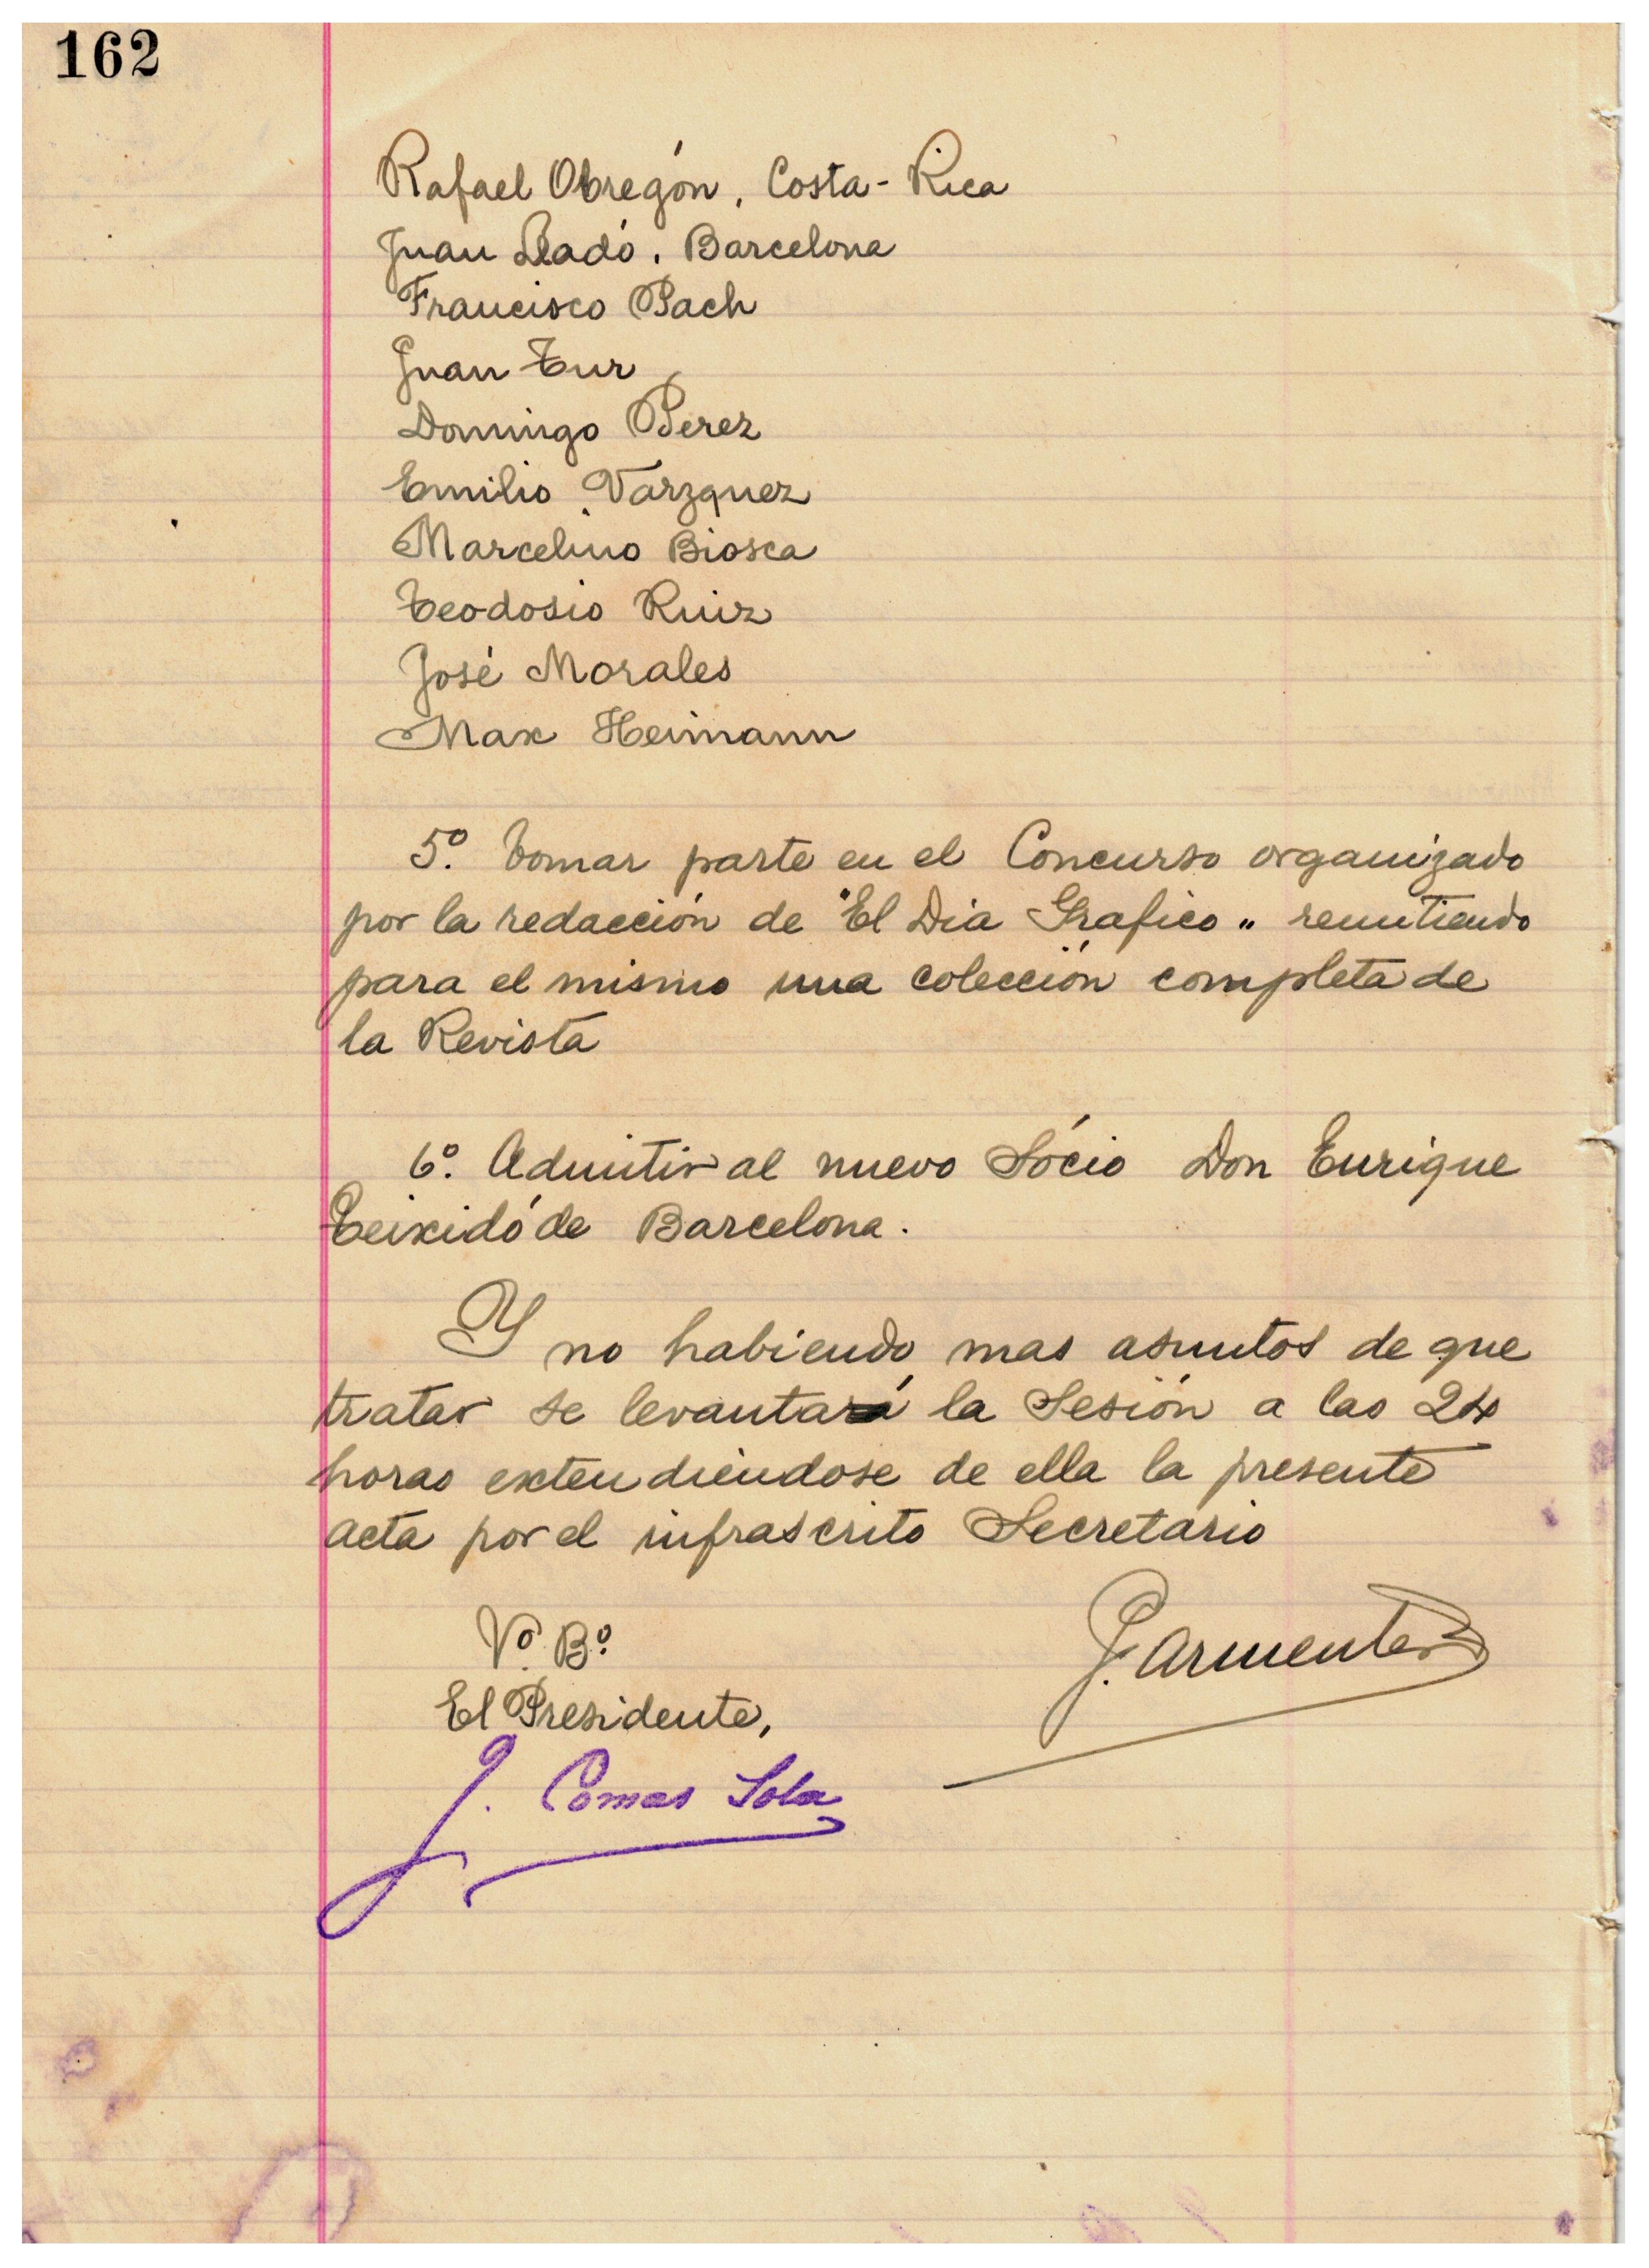 162
Rafael Obregón, Costa-Rica
Juan Lladó. Barcelona
Francisco Pach
Juan Tur
Domingo Perez
Emilio Varzquez
Marcelino Biosca
Teodosio Ruiz
José Morales
Max Heimann
5º. Tomar parte en el Concurso organizado
por la redacción de "El Dia Grafico" remitiendo
para el mismo una colección completa de
la Revista
6º. Admitir al nuevo Sócio Don Enrique
Teixidó de Barcelona.
Y no habiendo mas asuntos de que
tratar se levantará la Sesión a las 24
horas extendiéndose de ella la presente
acta por el infrascrito Secretario
Vº. Bº.
J. Armenter
El Presidente,
J. Comas Sola